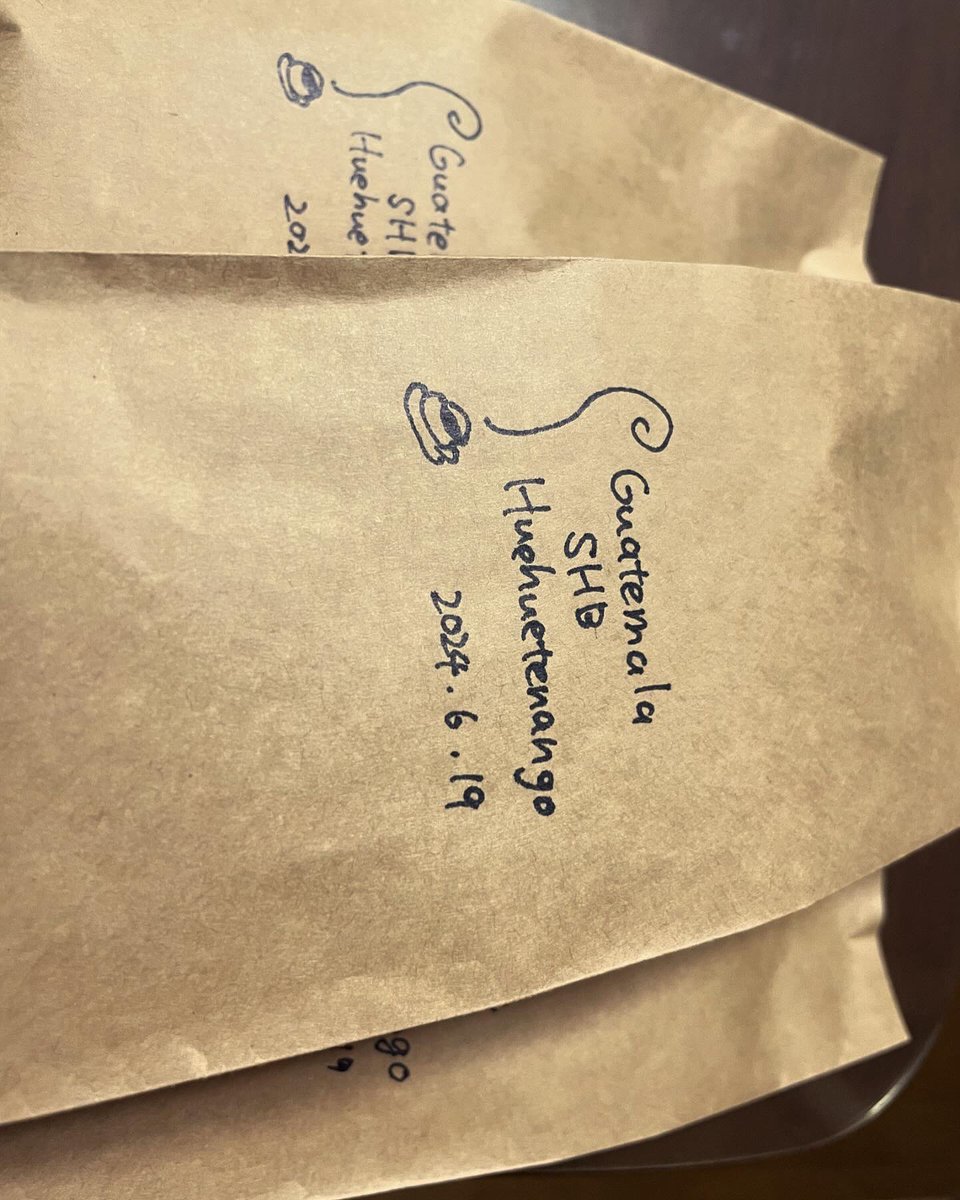 Guate
SH
Huehue
202
Guatemala
SHB
Huehuetenango
2024.6.19
go
19